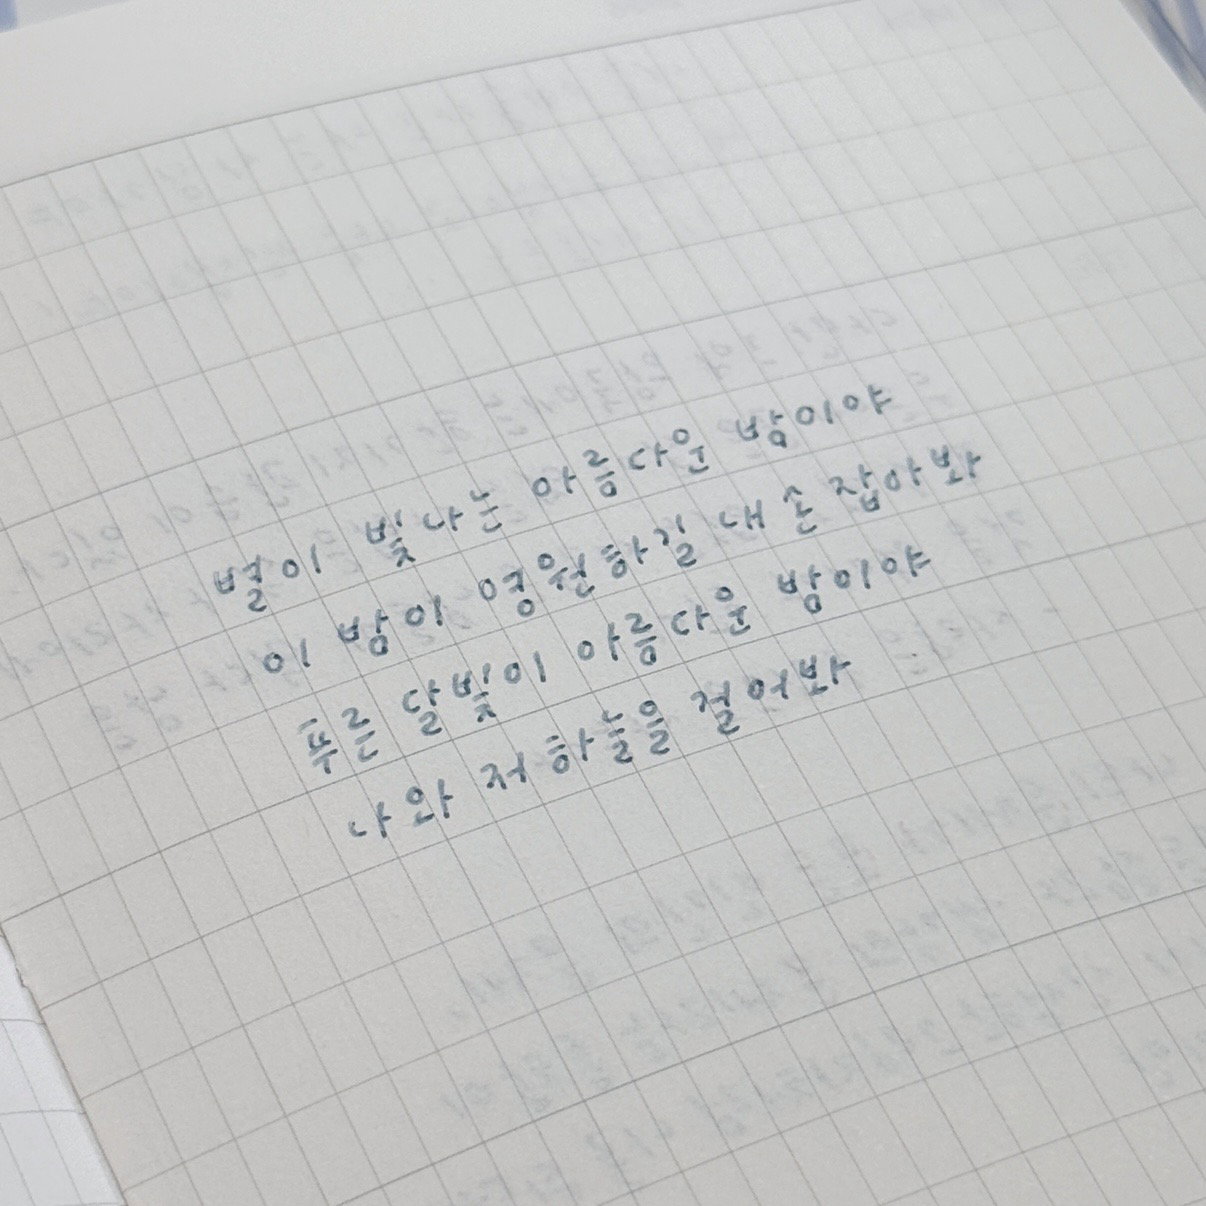 별이 빛나는 아름다운 밤이야
이 밤이 영원하길 내 손 잡아봐
푸른 달빛이 아름다운 밤이야
나와 저 하늘을 걸어봐